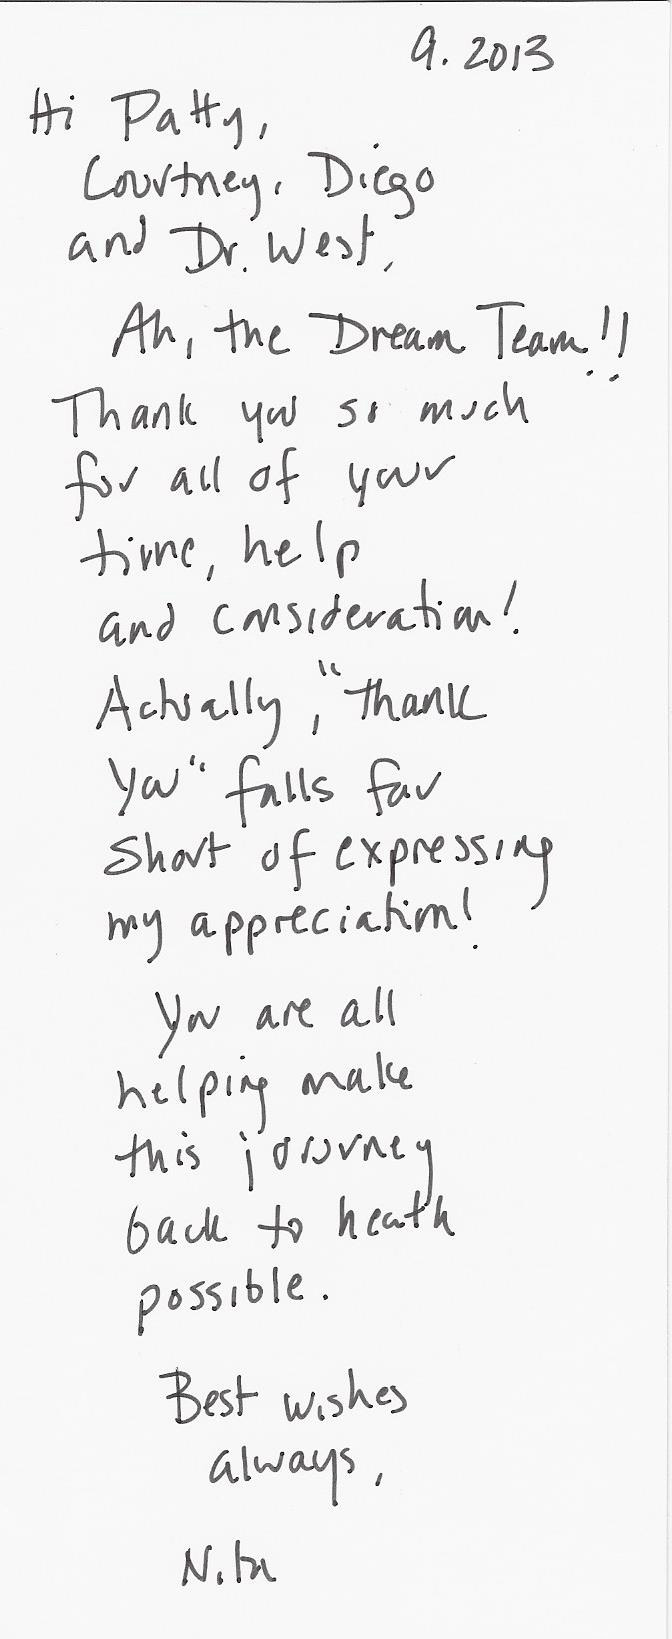 9. 2013
Hi Patty,
Courtney, Diego
and Dr. West,
Ah, the Dream Team!!
Thank you so much
for all of your
time, help
and consideration!
Actually, "thank
you" falls far
short of expressing
my appreciation!
You are all
helping make
this journey
back to heath
possible.
Best wishes
always,
Nita